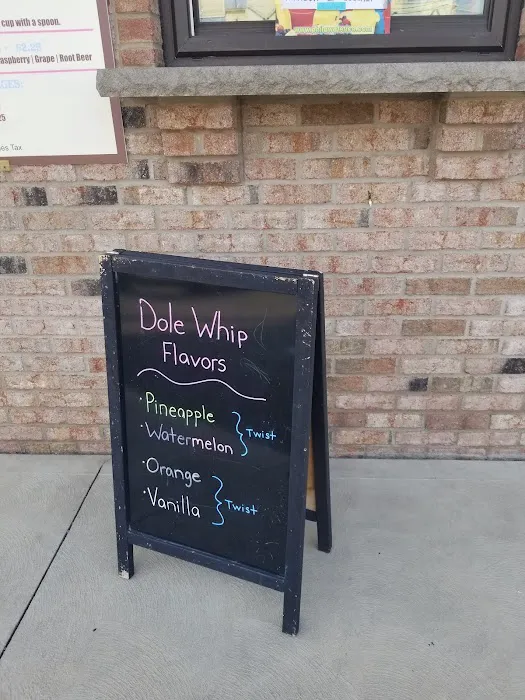 cup with a spoon.
$2.29
aspberry | Grape | Root Beer
es Tax
Dole Whip
Flavors
· Pineapple
· Watermelon
Twist
· Orange
· Vanilla
Twist